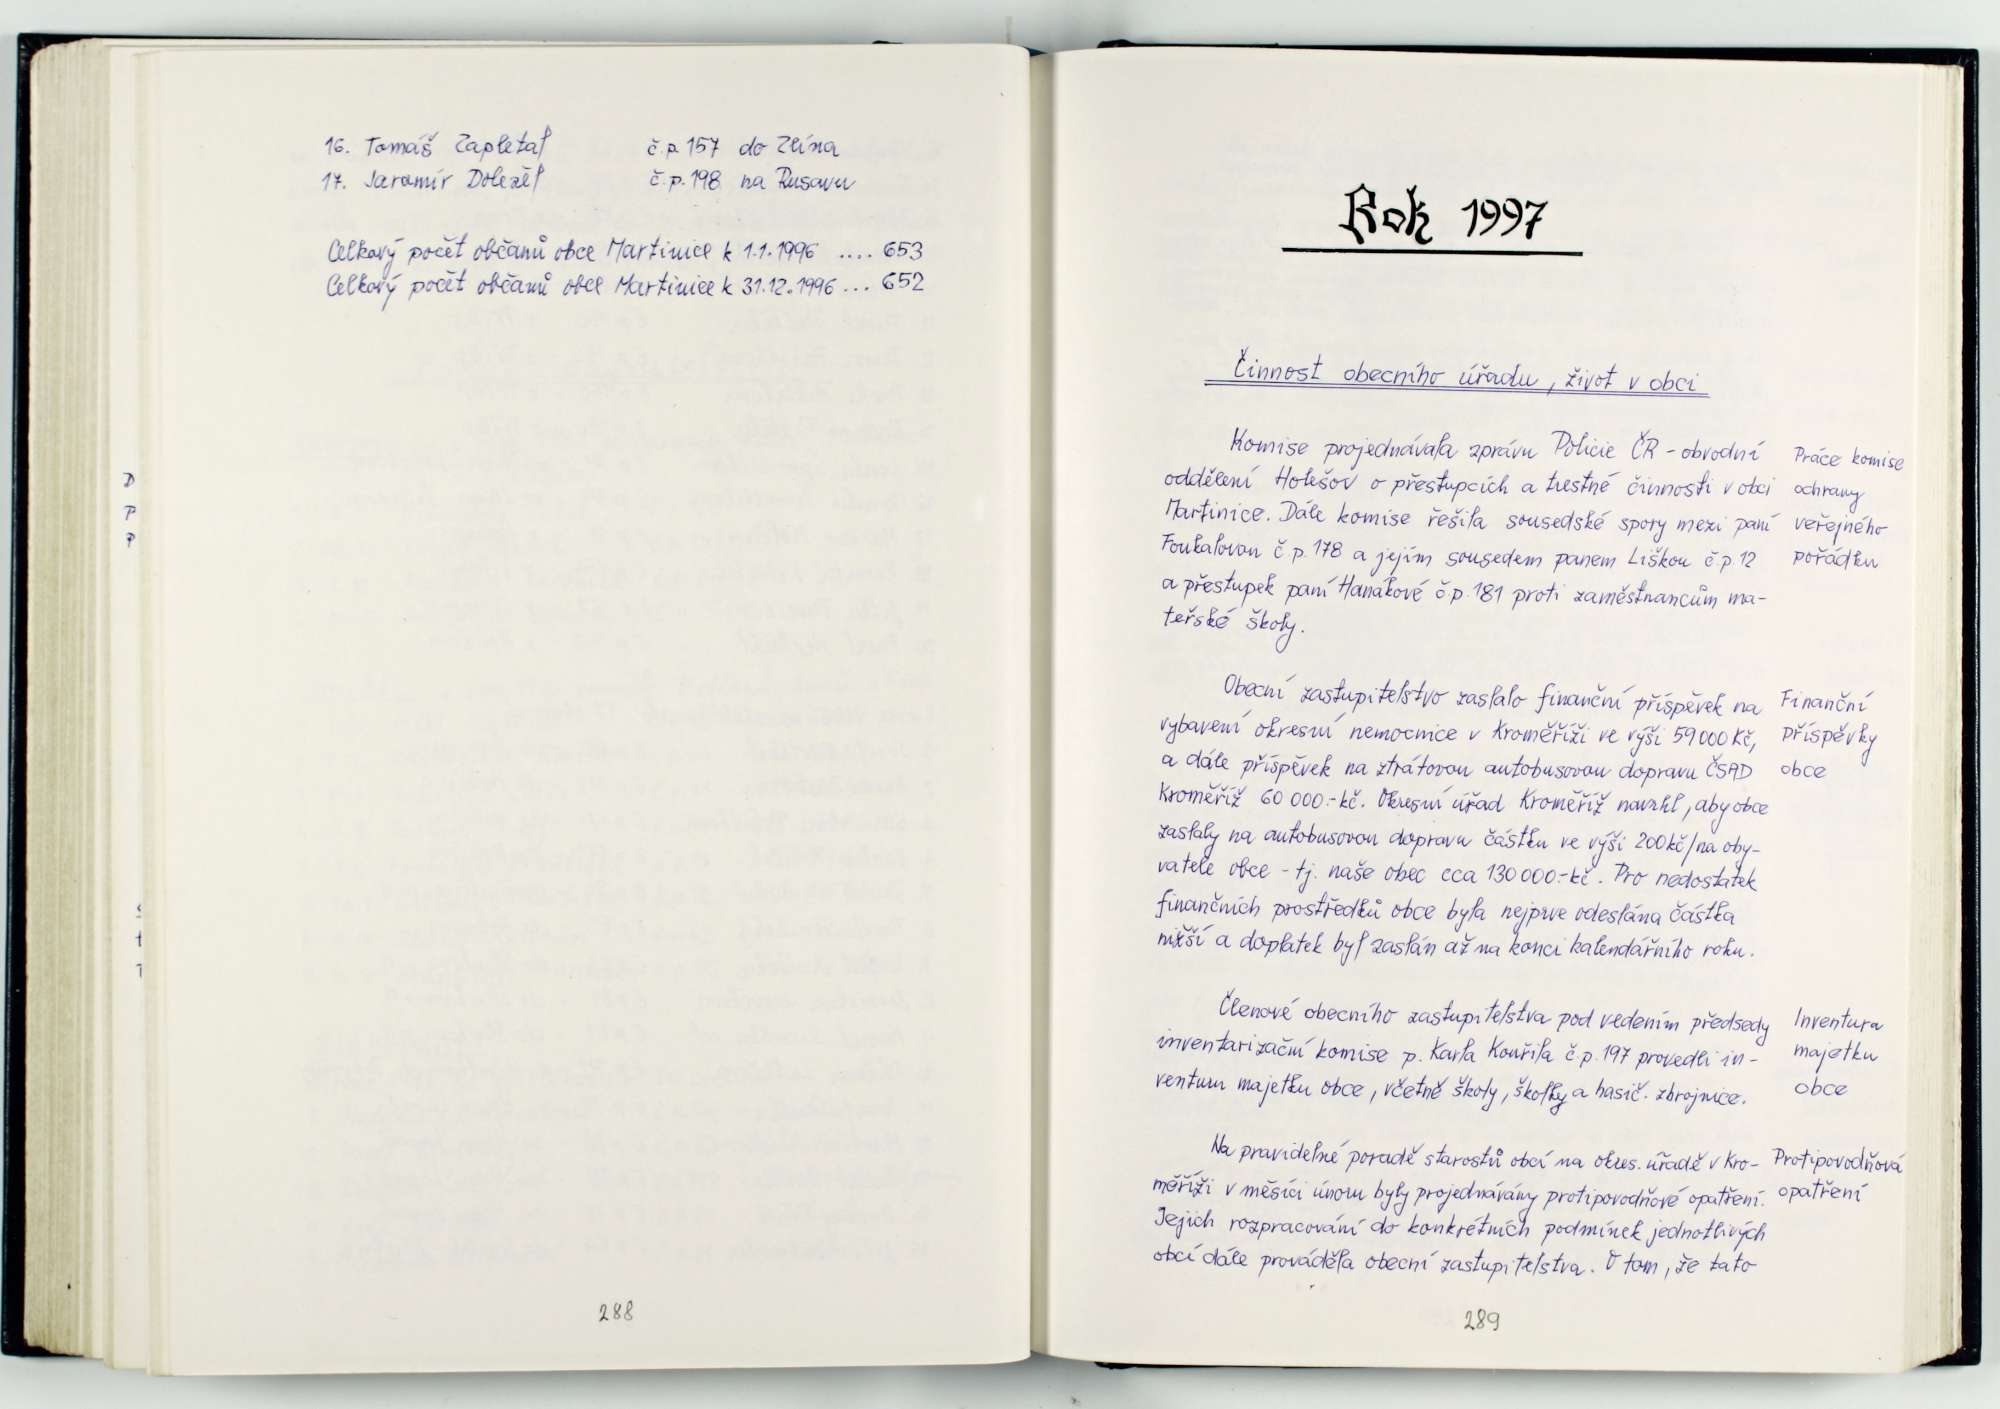 16. Tomáš Zapletal č.p. 157 do Zlína
17. Jaromír Doležel č.p. 198 na Rusavu
Celkový počet občanů obce Martinice k 1.1.1996 .... 653
Celkový počet občanů obce Martinice k 31.12.1996 ... 652
288
Rok 1997
Činnost obecního úřadu, život v obci
Komise projednávala zprávu Policie ČR - obvodní
oddělení Holešov o přestupcích a trestné činnosti v obci
Martinice. Dále komise řešila sousedské spory mezi paní
Foukalovou č.p. 178 a jejím sousedem panem Liškou č.p. 12
a přestupek paní Hanákové č.p. 181 proti zaměstnancům ma-
teřské školy.
Práce komise
ochrany
veřejného
pořádku
Obecní zastupitelstvo zaslalo finanční příspěvek na
vybavení okresní nemocnice v Kroměříži ve výši 59 000 Kč,
a dále příspěvek na ztrátovou autobusovou dopravu ČSAD
Kroměříž 60 000.- kč. Okresní úřad Kroměříž navrhl, aby obce
zaslaly na autobusovou dopravu částku ve výši 200 kč/na oby-
vatele obce - tj. naše obec cca 130 000.- kč. Pro nedostatek
finančních prostředků obce byla nejprve odeslána částka
nižší a doplatek byl zaslán až na konci kalendářního roku.
Finanční
příspěvky
obce
Členové obecního zastupitelstva pod vedením předsedy
inventarizační komise p. Karla Kouřila č.p. 197 provedli in-
venturu majetku obce, včetně školy, školky a hasič. zbrojnice.
Inventura
majetku
obce
Na pravidelné poradě starostů obcí na okres. úřadě v Kro-
měříži v měsíci únoru byly projednávány protipovodňové opatření.
Jejich rozpracování do konkrétních podmínek jednotlivých
obcí dále prováděla obecní zastupitelstva. O tom, že tato
Protipovodňová
opatření
289